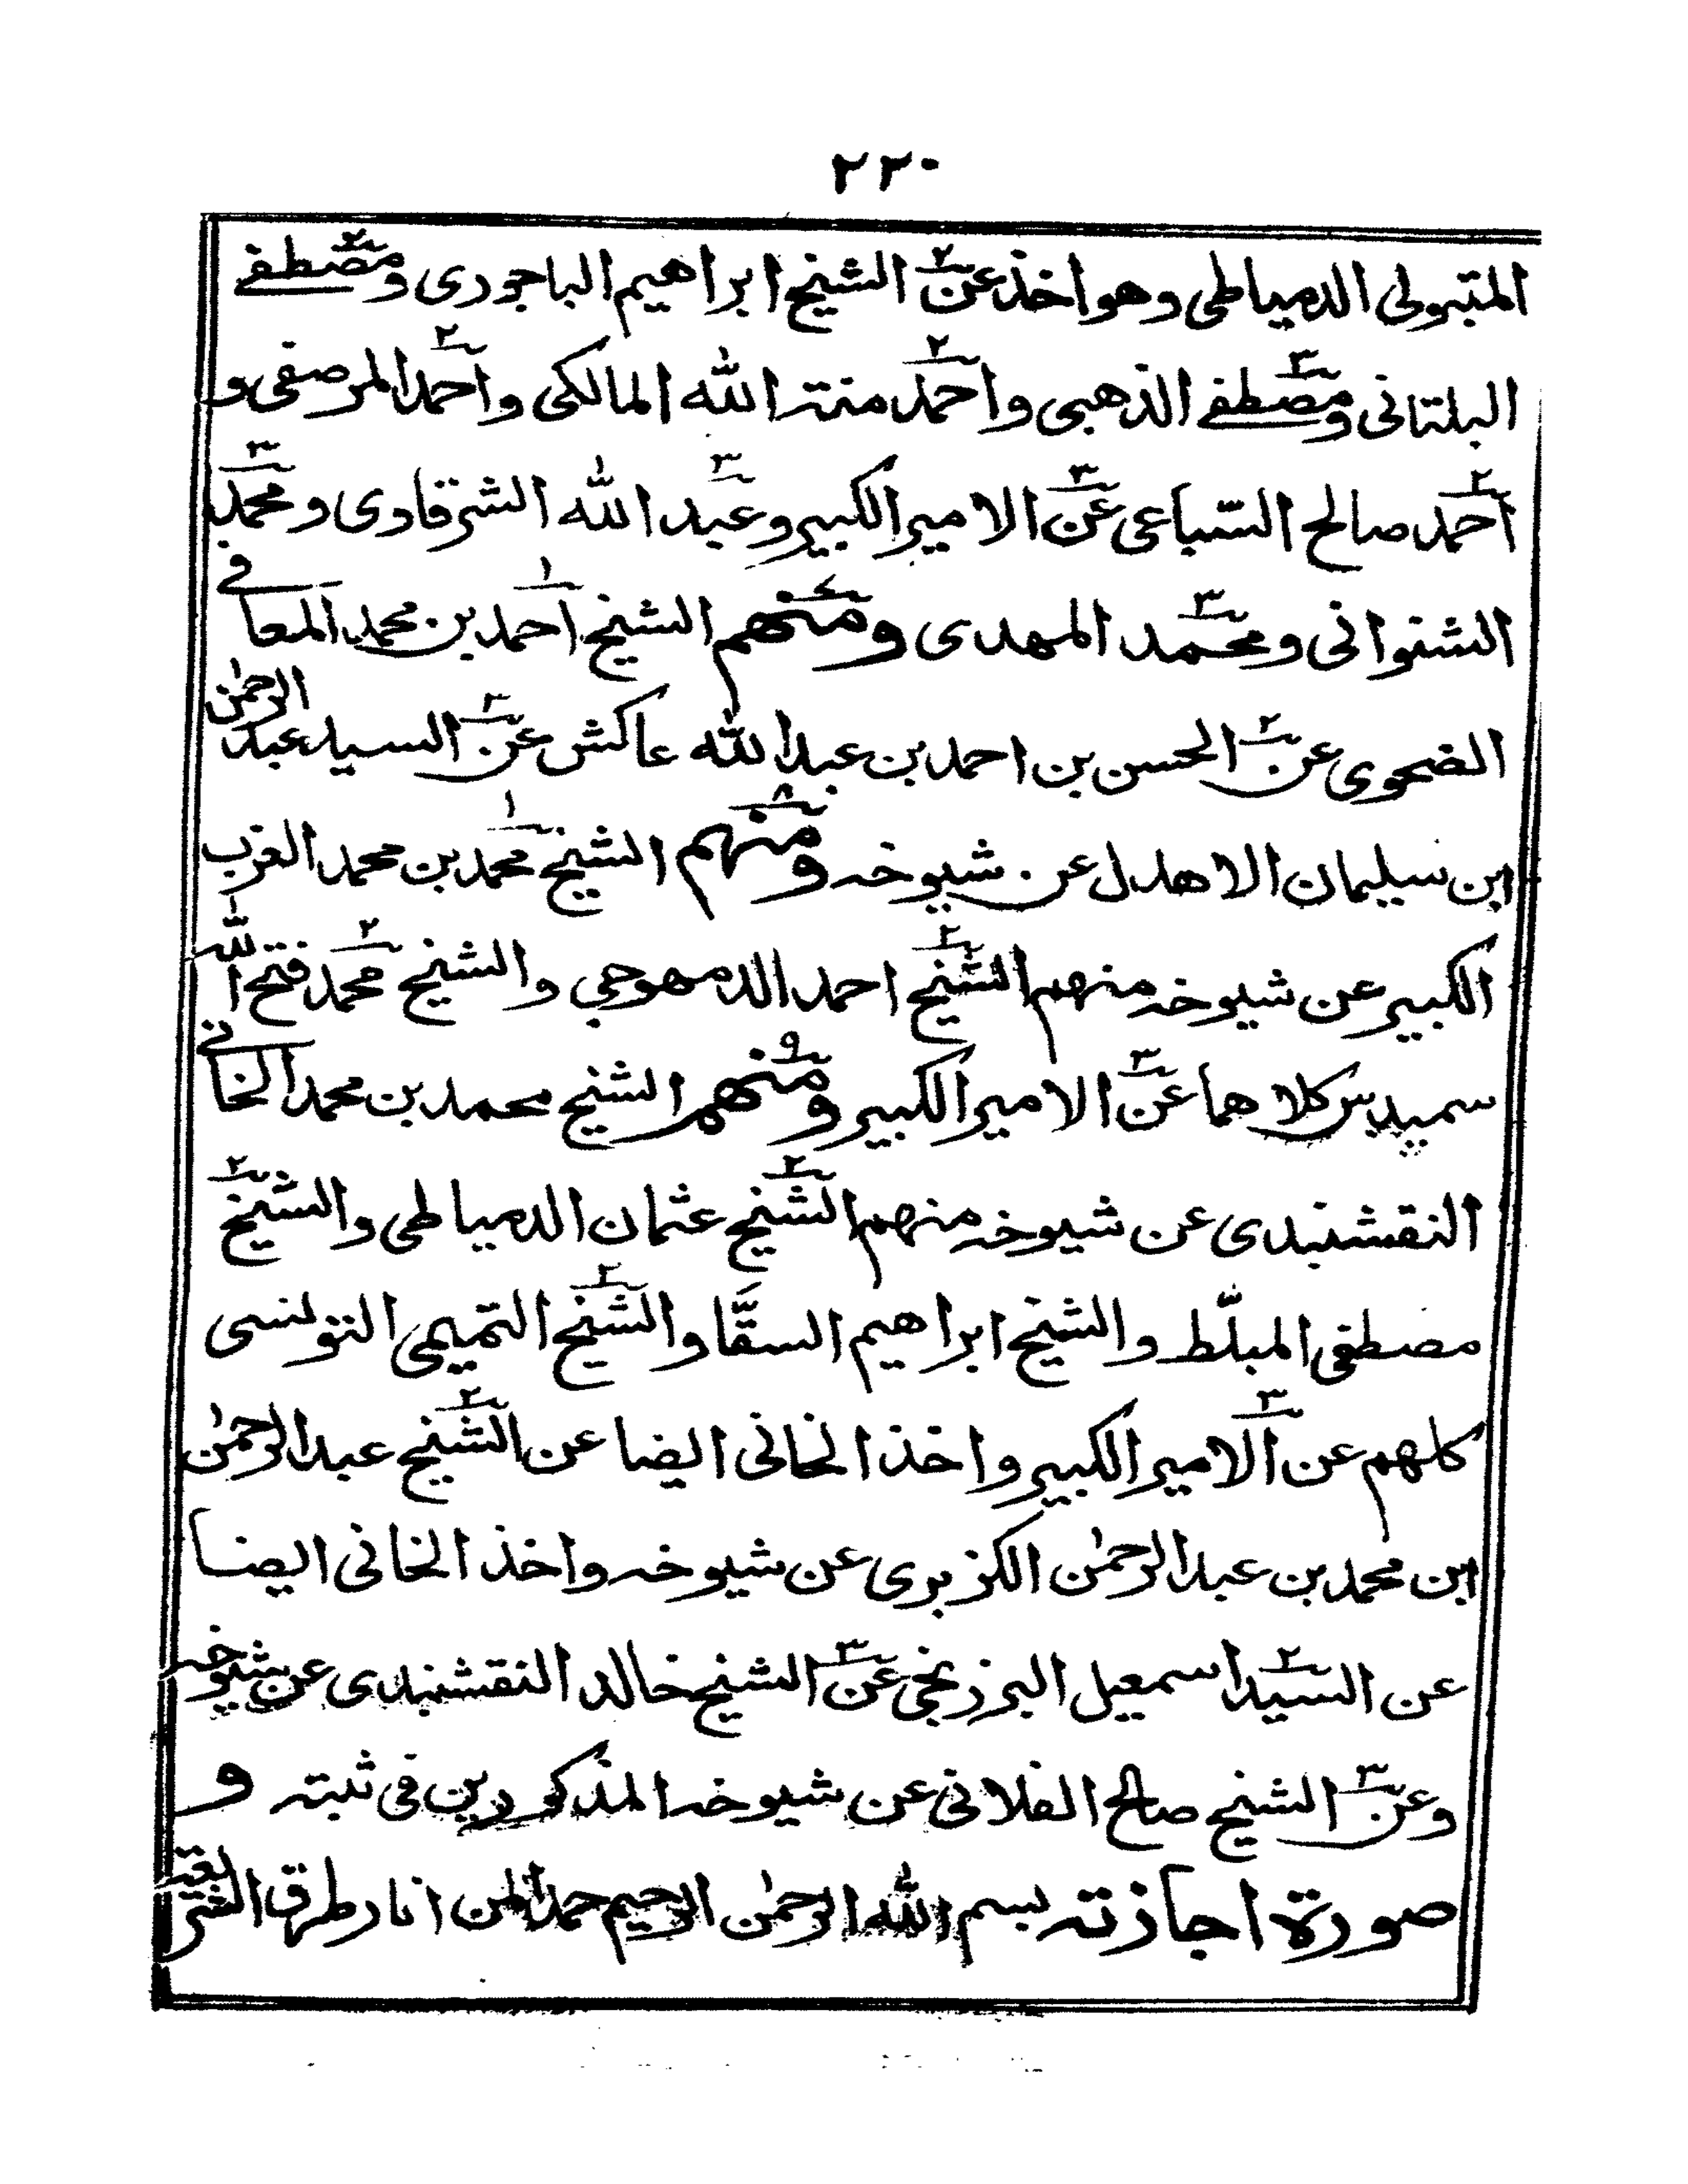 ٢٣٠
المتبولى الدمياطى وهو اخذ عن الشيخ ابراهيم الباجورى ومصطفے
البلتانى ومصطفے الذهبى واحمد منة الله المالكى واحمد المرصفى و
احمد صالح السّباعى عن الامير الكبير وعبد الله الشرقاوى ومحمد
الشنوانى ومحمد المهدى ومنهم الشيخ احمد بن محمد المعافے
الضحوى عن الحسن بن احمد بن عبد الله عاكش عن السيد عبد الرحمٰن
ابن سليمان الاهدل عن شيوخه ومنهم الشيخ محمد بن محمد العزب
الكبير عن شيوخه منهم الشيخ احمد الدمهوجي والشيخ محمد فتح الله
سميدس كلاهما عن الامير الكبير ومنهم الشيخ محمد بن محمد الخانے
النقشنبدى عن شيوخه منهم الشيخ عثمان الدمياطى والشيخ
مصطفى المبلّط والشيخ ابراهيم السقَّا والشيخ التميمى التونسى
كلهم عن الامير الكبير واخذ الخانى ايضا عن الشيخ عبد الرحمٰن
ابن محمد بن عبد الرحمٰن الكزبرى عن شيوخه واخذ الخانى ايضا
عن السيد اسمعيل البرزنجى عن الشيخ خالد النقشنبدى عن شيوخه
وعن الشيخ صالح الفلانى عن شيوخه المذكورين فى ثبته و
صورة اجازته بسم الله الرحمٰن الرحيم حمدا لمن انار طرق الشريعة